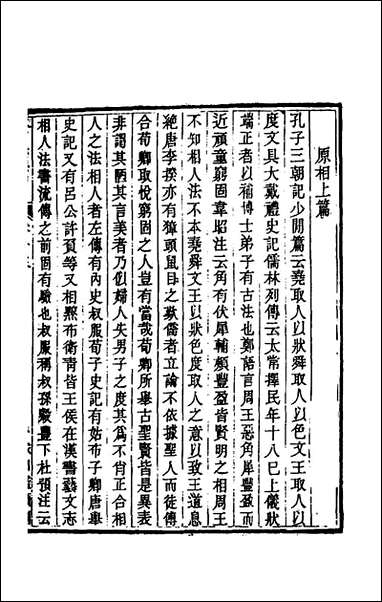 原相上篇
孔子三朝記少閒篇云堯取人以狀舜取人以色文王取人以
度文具大戴禮史記儒林列傳云太常擇民年十八已上儀狀
端正者以補博士弟子有古法也鄭語言周王惡角犀豐盈而
近頑童窮固韋昭注云角有伏犀輔頰豐盈皆賢明之相周王
不知相人法不本堯舜文王以狀色度取人之意以致王道息
絕唐李揆亦有獐頭鼠目之歎儒者立論不依據聖人而徒傳
合荀卿取悅窮固之人豈有當哉荀卿所舉古聖賢皆是異表
非謂其陋其言美者乃似婦人失男子之度其爲不肖正合相
人之法相人者左傳有內史叔服荀子史記有姑布子卿唐舉
史記又有呂公許負等又相黥布衛青皆王侯在漢書藝文志
相人法書流傳之前固有驗也叔服稱叔孫穀豐下杜預注云